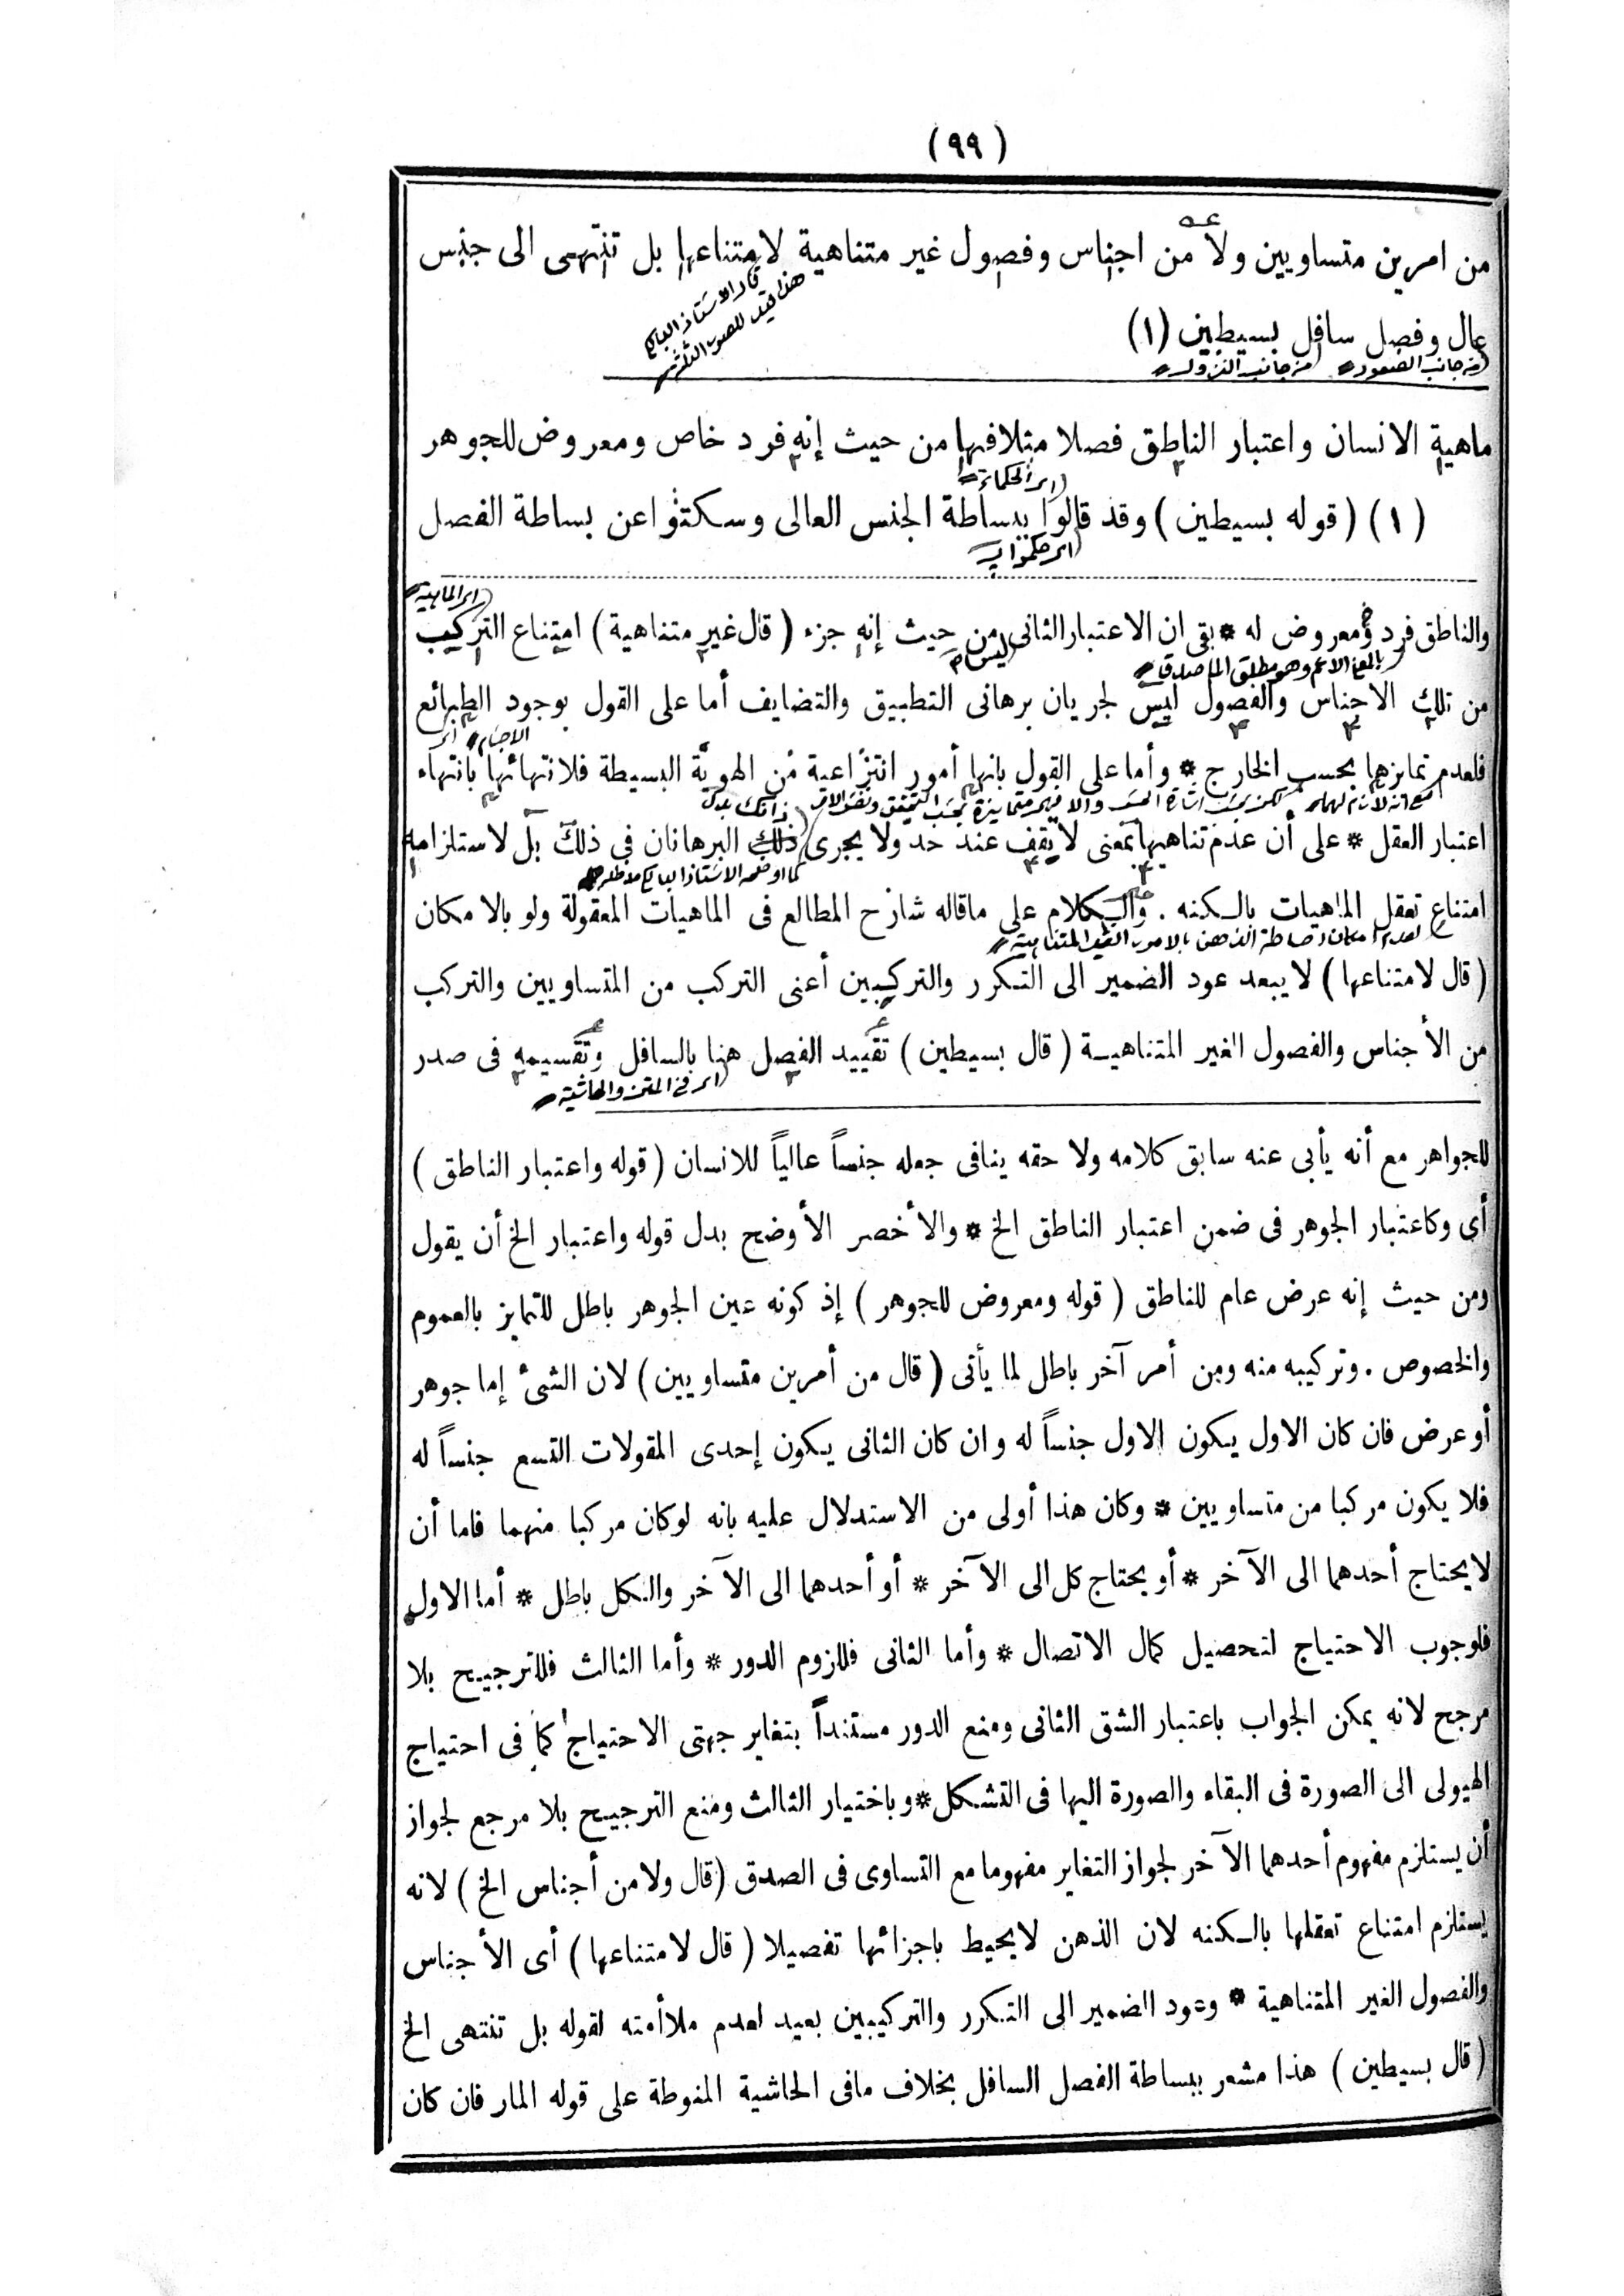 (٩٩)
من امرين متساويين ولا من اجناس وفصول غير متناهية لامتناعها بل تنتهى الى جنس
عال وفصل سافل بسيطين (١)
من جانب الصعود من جانب النزول
ماهية الانسان واعتبار الناطق فصلا مثلا فيها من حيث إنه فرد خاص ومعروض للجوهر
اى الحكماء
(١) (قوله بسيطين) وقد قالوا ببساطة الجنس العالى وسكتوا عن بساطة الفصل
اى حكموا ب
اى الماهية
والناطق فرد ومعروض له * بقى ان الاعتبار الثانى من حيث إنه جزء (قال غير متناهية) امتناع التركيب
بالمعنى الاعم وهو مطلق الماصدق
من تلك الاجناس والفصول ليس لجريان برهانى التطبيق والتضايف أما على القول بوجود الطبائع
فلعدم تمايزها بحسب الخارج * وأما على القول بانها أمور انتزاعية من الهوية البسيطة فلانتهائها بانتهاء
اعتبار العقل * على أن عدم تناهيها بمعنى لا يقف عند حد ولا يجرى ذلك البرهانان فى ذلك بل لاستلزامه
امتناع تعقل الماهيات بالكنه . والكلام على ماقاله شارح المطالع فى الماهيات المعقولة ولو بالامكان
لعدم امكان احاطة الذهن بالامور الغير المتناهية
(قال لامتناعها) لا يبعد عود الضمير الى التكرر والتركيبين أعنى التركب من المتساويين والتركب
من الأجناس والفصول الغير المتناهية (قال بسيطين) تقييد الفصل هنا بالسافل وتقسيمه فى صدر
اى فى المتن والحاشية
للجواهر مع أنه يأبى عنه سابق كلامه ولاحقه ينافى جعله جنساً عالياً للانسان (قوله واعتبار الناطق)
أى وكاعتبار الجوهر فى ضمن اعتبار الناطق الخ * والأخصر الأوضح بدل قوله واعتبار الخ أن يقول
ومن حيث إنه عرض عام للناطق (قوله ومعروض للجوهر) إذ كونه عين الجوهر باطل للتمايز بالعموم
والخصوص . وتركيبه منه ومن أمر آخر باطل لما يأتى (قال من أمرين متساويين) لان الشئ إما جوهر
أو عرض فان كان الاول يكون الاول جنساً له وان كان الثانى يكون إحدى المقولات التسع جنساً له
فلا يكون مركبا من متساويين * وكان هذا أولى من الاستدلال عليه بانه لوكان مركبا منهما فاما أن
لايحتاج أحدهما الى الآخر * أو يحتاج كل الى الآخر * أو أحدهما الى الآخر والكل باطل * أما الاول
فلوجوب الاحتياج لتحصيل كمال الاتصال * وأما الثانى فللزوم الدور * وأما الثالث فللترجيح بلا
مرجح لانه يمكن الجواب باعتبار الشق الثانى ومنع الدور مستنداً بتغاير جهتى الاحتياج كما فى احتياج
الهيولى الى الصورة فى البقاء والصورة اليها فى التشكل * وباختيار الثالث ومنع الترجيح بلا مرجع لجواز
أن يستلزم مفهوم أحدهما الآخر لجواز التغاير مفهوما مع التساوى فى الصدق (قال ولا من أجناس الخ) لانه
يستلزم امتناع تعقلها بالكنه لان الذهن لايحيط باجزائها تفصيلا (قال لامتناعها) أى الأجناس
والفصول الغير المتناهية * وعود الضمير الى التكرر والتركيبين بعيد لعدم ملاأمته لقوله بل تنتهى الخ
(قال بسيطين) هذا مشعر ببساطة الفصل السافل بخلاف مافى الحاشية المنوطة على قوله المار فان كان